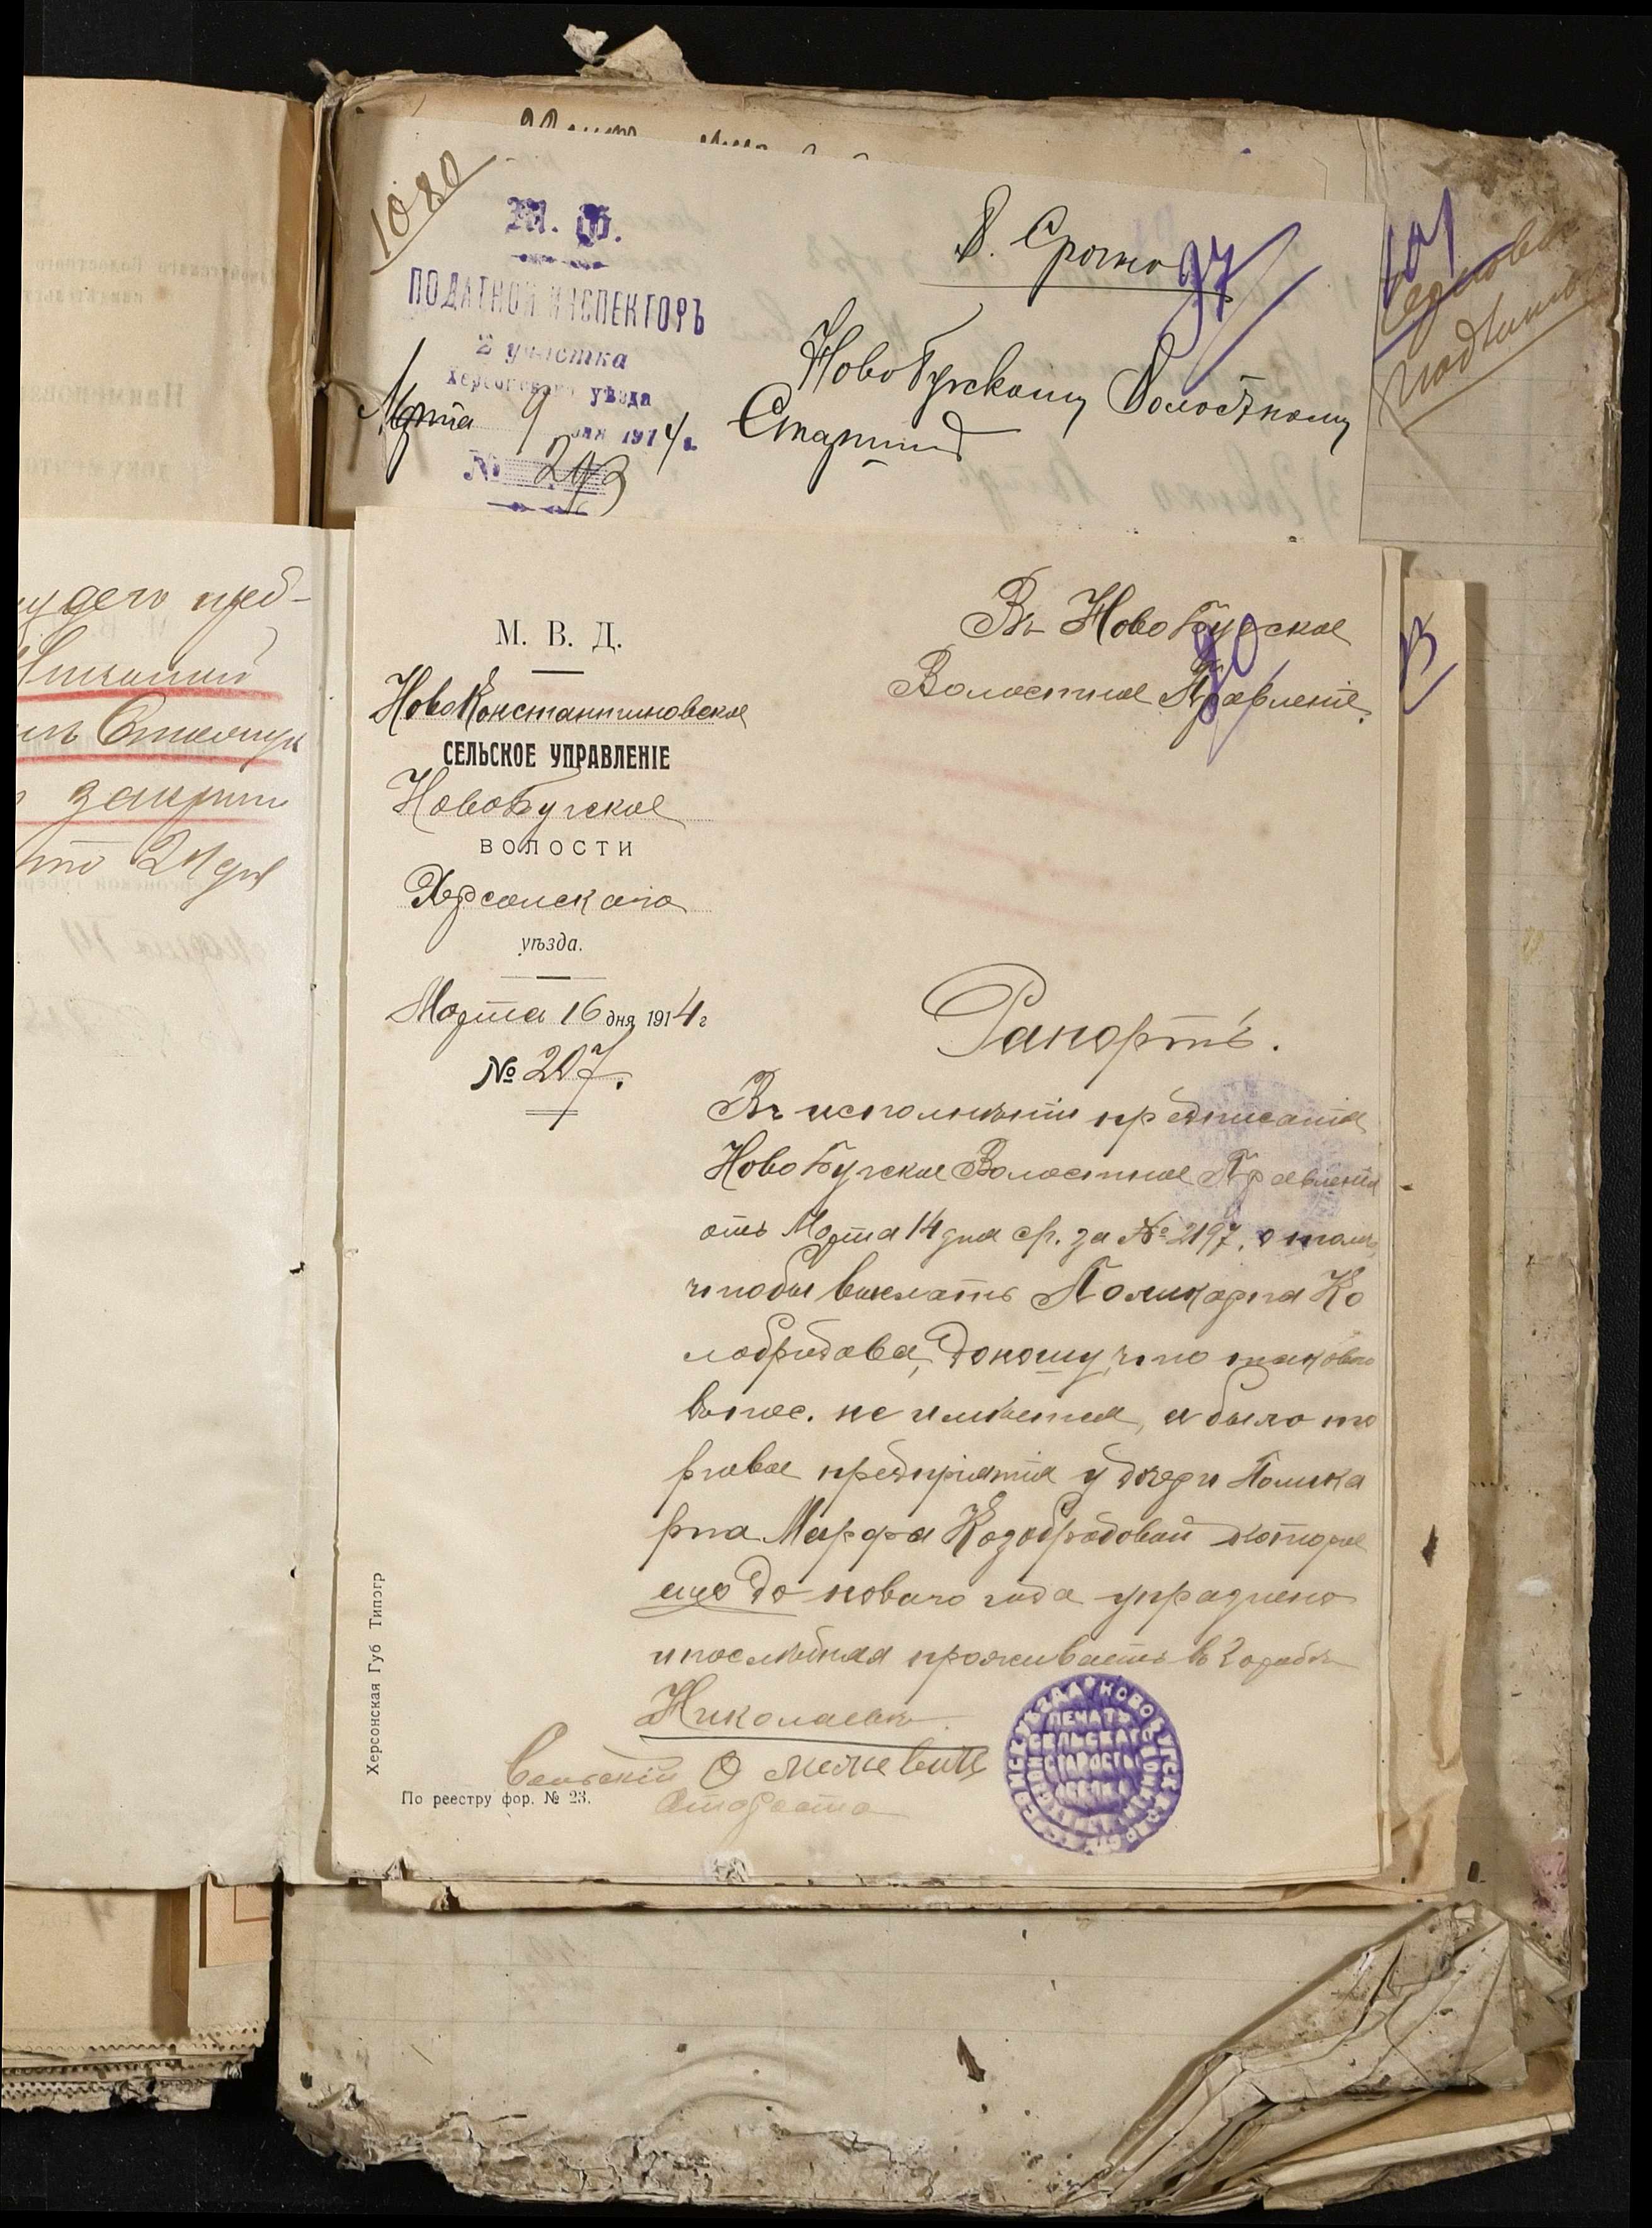 1080
М. Ф.
ПОДАТНОЙ ИНСПЕКТОРЪ
2 участка
Херсонскаго уѣзда
Марта 9 дня 1914 г.
№ 293
В. Срочно
97
НовоБугскому Волостному
Старшинѣ
101
М. В. Д.
НовоКонстантиновское
СЕЛЬСКОЕ УПРАВЛЕНІЕ
НовоБугское
ВОЛОСТИ
Херсонскаго
уѣзда.
Марта 16 дня 1914 г
№ 207.
Въ НовоБугское
90
Волостное Правленіе.
Рапортъ.
Въ исполненіи предписанія
НовоБугское Волостное Правленія
отъ Марта 14 дня с/г. за № 2197, о томъ
чтобы выслать Поликарпа Ко
лобродова, доношу, что таковаго
въ пос. не имѣется, а было то
рговое предпріятія у дочери Полика
рпа Марфа Козобродовой которое
еще до новаго года упразнено
и послѣдняя проживаетъ въ городѣ
Николаевѣ.
Сельскій О межевичъ
Староста
Херсонская Губ Типогр
По реестру фор. № 23.
ПЕЧАТЬ
СЕЛЬСКАГО
СТАРОСТЫ
удего пред-
закрыт
21 дня